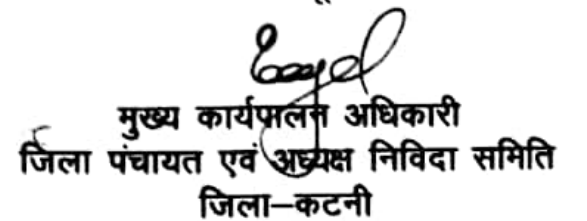 मुख्य कार्यपालन अधिकारी
जिला पंचायत एवं अध्यक्ष निविदा समिति
जिला–कटनी